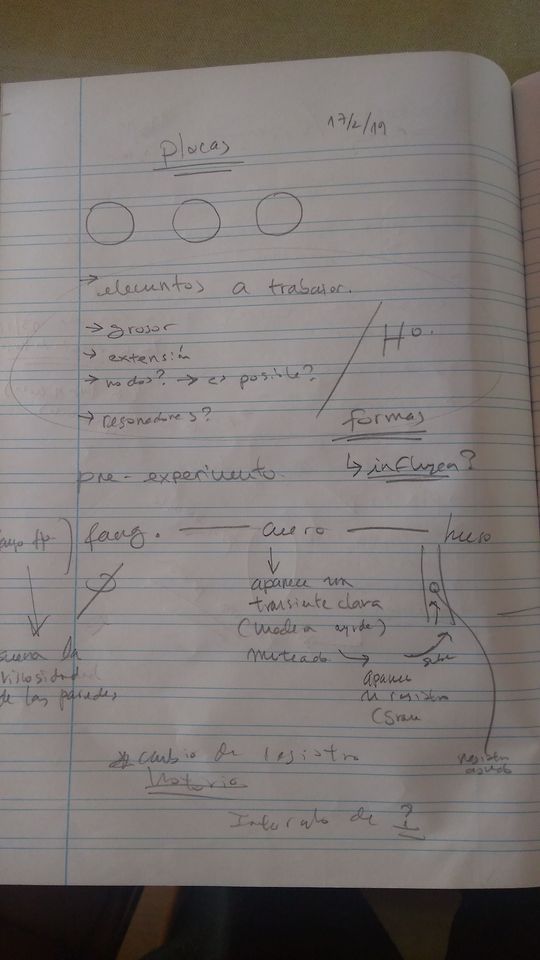 17/2/19
placas
→ elementos a trabajar.
→ grosor
→ extensión
→ nodos? → es posible?
→ resonadores?
Ho.
formas
↳ influyen?
pre-experimento.
fang. — acero — hueso
aparece un
transiente clara
(madera ayuda)
muteado → aparece
sube
un registro
suena la
viscosidad
de las paredes
cambio de registro
Notorio
registro
agudo
Intervalo de ?